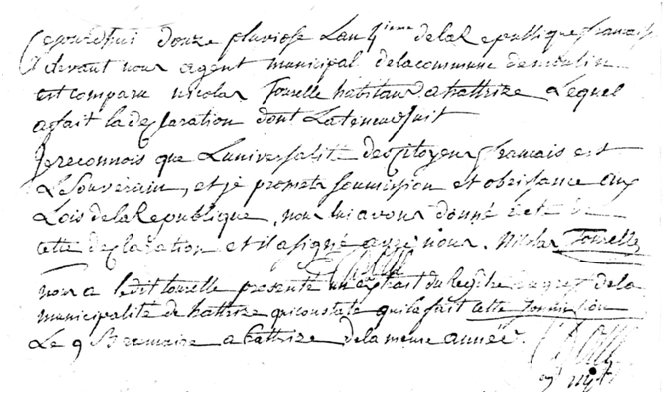 Cejourdhui douze pluviose Lan 4ieme dela Republique francaise
devant nous agent municipal delacommune demoulin
est comparu nicolas Tourelle habitant a hattrize Lequel
afait la declaration dont Lateneur suit
Jereconnois que Luniversalité descitoyens francais est
Le Souverain, et je promets soumission et obeissance aux
Lois dela République, nous lui avons donné acte de
cette declaration et il a signé avec nous. Nicolas Tourelle
nous a ledit tourelle presenté un extrait du Registre dela
municipalité de hattrize qui constate quil a fait cette soumission
Le 9 Brumaire a hattrize dela meme année.